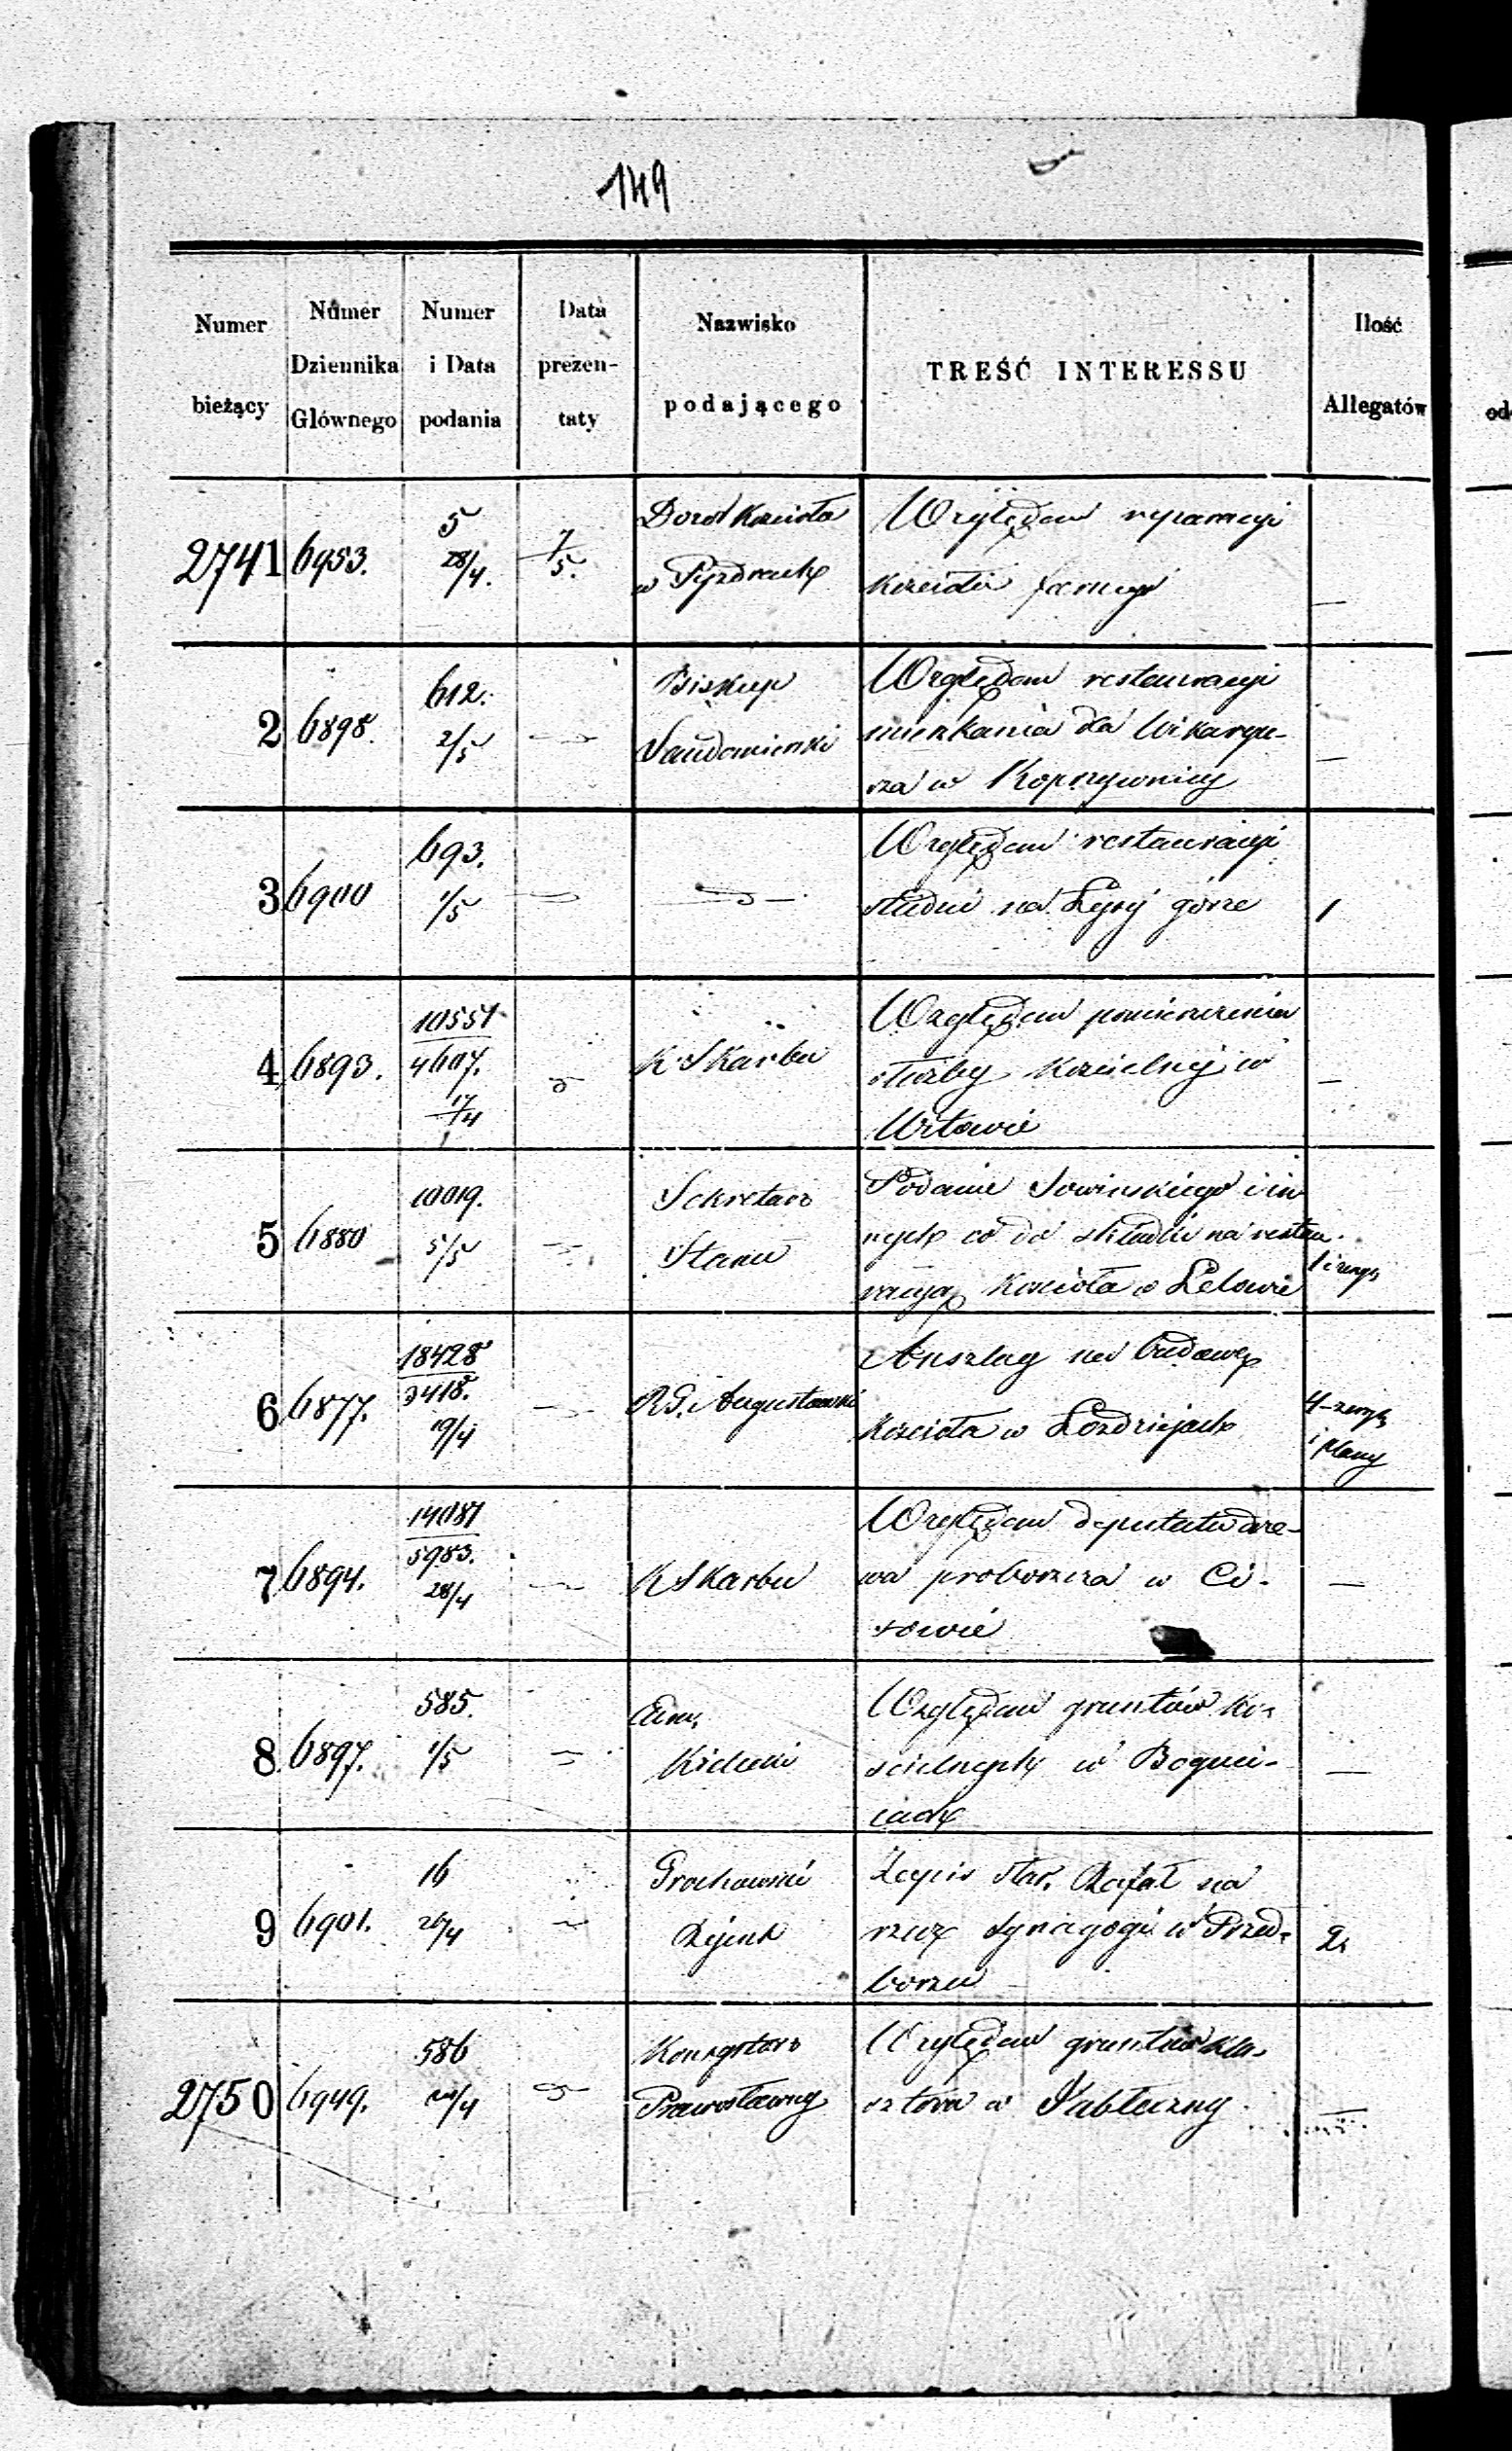 149
Numer bieżący
Numer Dziennika Głównego
Numer i Data podania
Data prezen- taty
Nazwisko podającego
TREŚĆ INTERESSU
Ilość Allegatów
od
2741 6953. 5 28/4. 7/5. Dozór Kościoła w Pyzdrach Względem reparacyi
kościoła farnego —
2 6898. 612. 2/5 Biskup Sandomierski Względem restauracyi
mieszkania dla Wikaryu-
sza w Koprzywnicy —
3 6900 693. 1/5 Względem restauracyi
studni na Łyséj górze 1
4 6893. 10551/4607. 17/4 K Skarbu Względem pomieszczenia
służby kościelnéj w
Witowie —
5 6880 10019. 5/5 Sekretarz Stanu Podanie Sowińskiego i in
nych co do składki na restau-
racyą Kościoła w Lelowie
6 6877. 18428/3418. 19/4 R.G. Augustowski Anszlag na budowę
kościoła w Łozdziejach 4-
i plany
7 6894. 14087/5983. 28/4 K Skarbu Względem deputatu drze-
wa proboszcza w Ci-
sowie —
8 6897. 585. 1/5 Kielecki Względem gruntów ko-
ścielnych w Boguci-
cach —
9 6901. 16 26/4 Grochowski Rejent Zapis Rafał na
rzecz Synagogi w Przed-
borzu 2.
2750 6949. 586 /4 Konsystorz Prawosławny Względem gruntów kla-
sztoru w Jabłeczny —